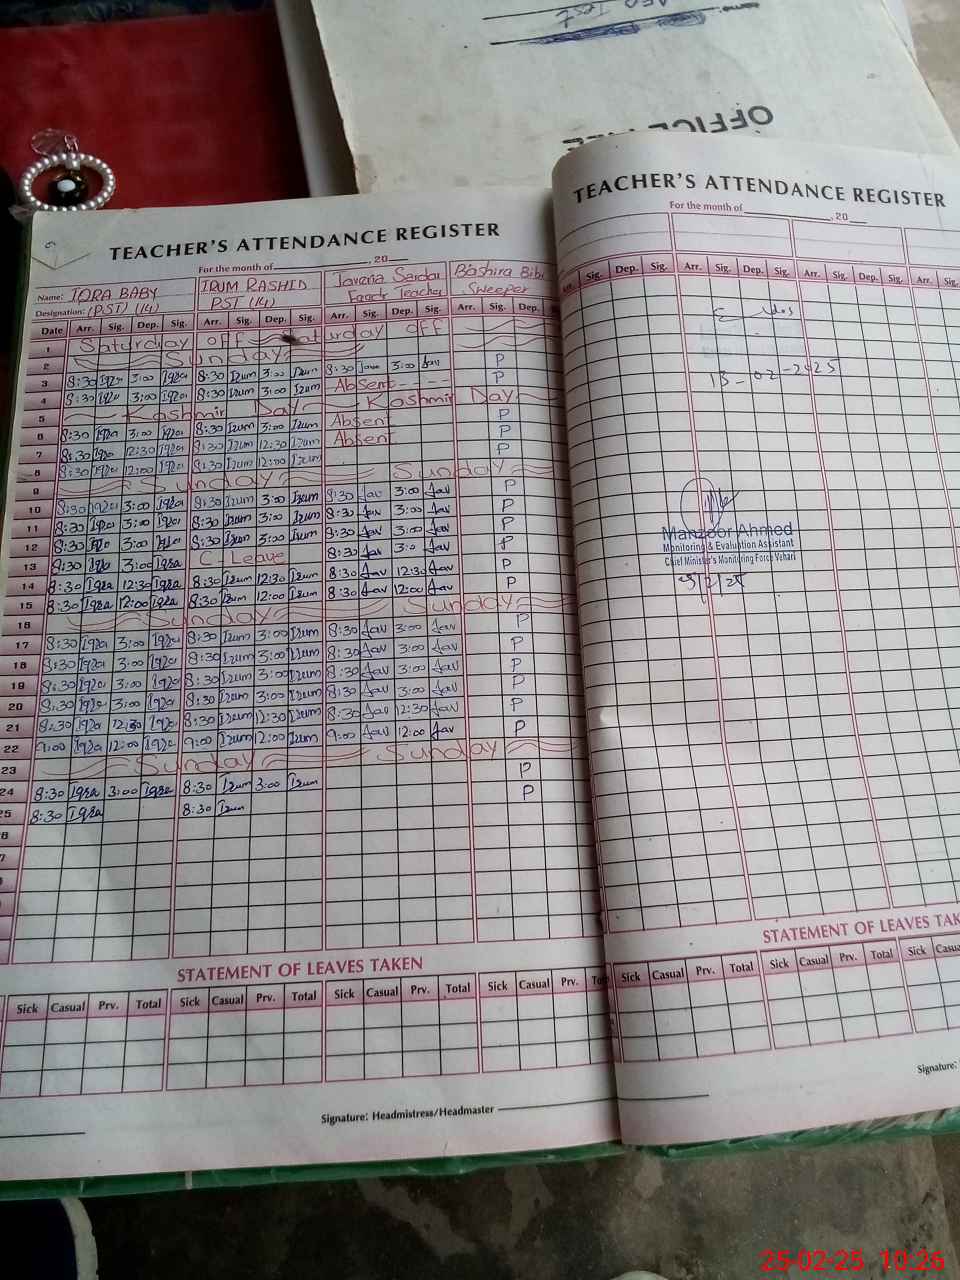 OFFICE
TEACHER'S ATTENDANCE REGISTER
For the month of , 20
Name: IQRA BABY IRUM RASHID Javaria Sardar Bashira Bibi
Designation: (PST) (14) PST (14) Eaach Teacher Sweeper
Date Arr. Sig. Dep. Sig. Arr. Sig. Dep. Sig. Arr. Sig. Dep. Sig. Arr. Sig. Dep.
1 Saturday off Saturday off
2 Sunday
3 8:30 Iqra 3:00 Iqra 8:30 Irum 3:00 Irum 8:30 Jav 3:00 Jav P
4 8:30 Iqra 3:00 Iqra 8:30 Irum 3:00 Irum Absent P
5 Kashmir Day Kashmir Day
6 8:30 Iqra 3:00 Iqra 8:30 Irum 3:00 Irum Absent P
7 8:30 Iqra 12:30 Iqra 8:30 Irum 12:30 Irum Absent P
8 8:30 Iqra 12:00 Iqra 8:30 Irum 12:00 Irum P
9 Sunday Sunday
10 8:30 Iqra 3:00 Iqra 8:30 Irum 3:00 Irum 8:30 Jav 3:00 Jav P
11 8:30 Iqra 3:00 Iqra 8:30 Irum 3:00 Irum 8:30 Jav 3:00 Jav P
12 8:30 Iqra 3:00 Iqra 8:30 Irum 3:00 Irum 8:30 Jav 3:00 Jav P
13 8:30 Iqra 3:00 Iqra C Leave 8:30 Jav 3:0 Jav P
14 8:30 Iqra 12:30 Iqra 8:30 Irum 12:30 Irum 8:30 Jav 12:30 Jav P
15 8:30 Iqra 12:00 Iqra 8:30 Irum 12:00 Irum 8:30 Jav 12:00 Jav P
16 Sunday Sunday
17 8:30 Iqra 3:00 Iqra 8:30 Irum 3:00 Irum 8:30 Jav 3:00 Jav P
18 8:30 Iqra 3:00 Iqra 8:30 Irum 3:00 Irum 8:30 Jav 3:00 Jav P
19 8:30 Iqra 3:00 Iqra 8:30 Irum 3:00 Irum 8:30 Jav 3:00 Jav P
20 8:30 Iqra 3:00 Iqra 8:30 Irum 3:00 Irum 8:30 Jav 3:00 Jav P
21 8:30 Iqra 12:30 Iqra 8:30 Irum 12:30 Irum 8:30 Jav 12:30 Jav P
22 9:00 Iqra 12:00 Iqra 9:00 Irum 12:00 Irum 9:00 Jav 12:00 Jav P
23 Sunday Sunday
24 8:30 Iqra 3:00 Iqra 8:30 Irum 3:00 Irum P
25 8:30 Iqra 8:30 Irum P
STATEMENT OF LEAVES TAKEN
Sick Casual Prv. Total Sick Casual Prv. Total Sick Casual Prv. Total Sick Casual Prv.
Signature: Headmistress/Headmaster
TEACHER'S ATTENDANCE REGISTER
For the month of , 20
Sig. Dep. Sig. Arr. Sig. Dep. Sig. Arr. Sig. Dep. Sig. Arr.
13-02-2025
Manzoor Ahmed
Monitoring & Evaluation Assistant
Chief Minister's Monitoring Force Vehari
25/2/25
STATEMENT OF LEAVES TAK
Sick Casual Prv. Total Sick Casual Prv. Total Sick Casua
Signature:
25-02-25 10:26